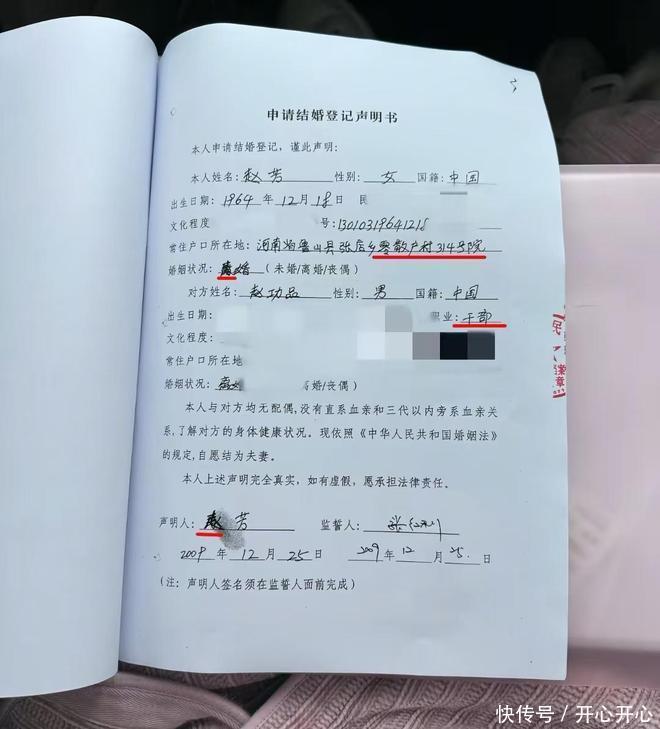 申请结婚登记声明书
本人申请结婚登记，谨此声明：
本人姓名：赵芳 性别：女 国籍：中国
出生日期：1964年12月18日 民
文化程度 号：13010319641218
常住户口所在地：河南省鲁山县张店乡零散户村314号院
婚姻状况：离婚（未婚/离婚/丧偶）
对方姓名：赵功品 性别：男 国籍：中国
出生日期： 职业：干部
文化程度：
常住户口所在地
婚姻状况： 婚/丧偶）
本人与对方均无配偶，没有直系血亲和三代以内旁系血亲关
系，了解对方的身体健康状况。现依照《中华人民共和国婚姻法》
的规定，自愿结为夫妻。
本人上述声明完全真实，如有虚假，愿承担法律责任。
声明人：赵芳 监誓人：
2009年12月25日 2009年12月25日
（注：声明人签名须在监誓人面前完成）
民
章
快传号／开心开心